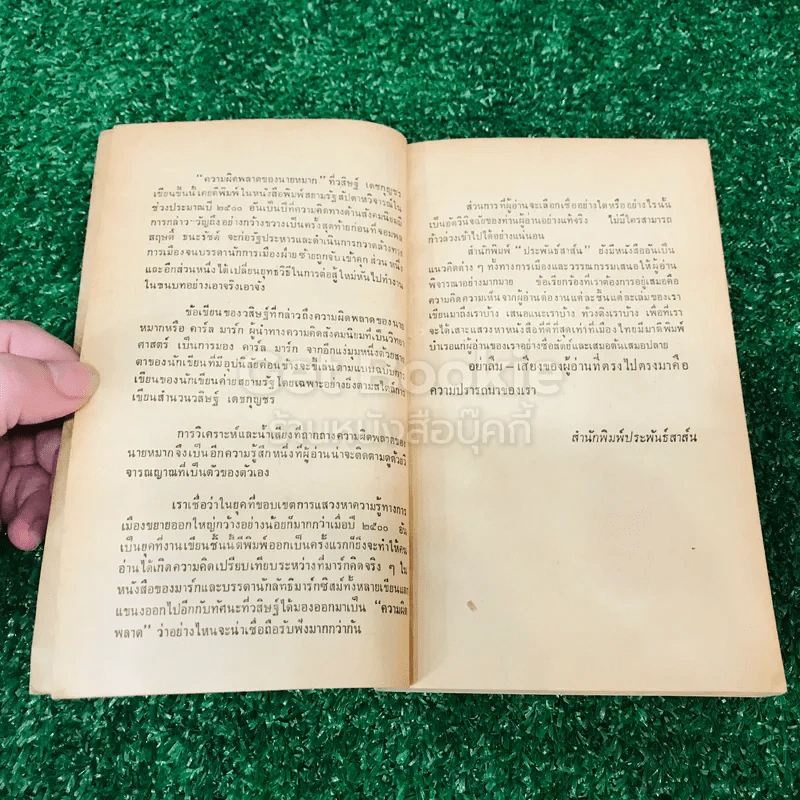 "ความผิดพลาดของนายหมาก" ที่วสิษฐ์ เดชกุญชร
เขียนชิ้นนี้เคยตีพิมพ์ในหนังสือพิมพ์สยามรัฐสัปดาหวิจารณ์ใน
ช่วงประมาณปี ๒๕๐๐ อันเป็นปีที่ความคิดทางด้านสังคมนิยมมี
การกล่าวขวัญถึงอย่างกว้างขวางเป็นครั้งสุดท้ายก่อนที่จอมพล
สฤษดิ์ ธนะรัชต์ จะก่อรัฐประหารและดำเนินการกวาดล้างทาง
การเมืองจนบรรดานักการเมืองฝ่ายซ้ายถูกจับเข้าคุกส่วนหนึ่ง
และอีกส่วนหนึ่งได้เปลี่ยนยุทธวิธีในการต่อสู้ใหม่หันไปทำงาน
ในชนบทอย่างเอาจริงเอาจัง
ข้อเขียนของวสิษฐ์ที่กล่าวถึงความผิดพลาดของนาย
หมากหรือ คาร์ล มาร์ก ผู้นำทางความคิดสังคมนิยมที่เป็นวิทยา
ศาสตร์ เป็นการมอง คาร์ล มาร์ก จากอีกแง่มุมหนึ่งด้วยสาย
ตาของนักเขียนที่มีอุปนิสัยค่อนข้างจะขี้เล่นตามแบบฉบับการ
เขียนของนักเขียนค่ายสยามรัฐโดยเฉพาะอย่างยิ่งตามสไตล์การ
เขียนสำนวนวสิษฐ์ เดชกุญชร
การวิเคราะห์และน้ำเสียงที่ถากถางความผิดพลาดของ
นายหมากจึงเป็นอีกความรู้สึกหนึ่งที่ผู้อ่านน่าจะติดตามดูด้วยวิ
จารณญาณที่เป็นตัวของตัวเอง
เราเชื่อว่าในยุคที่ขอบเขตการแสวงหาความรู้ทางการ
เมืองขยายออกใหญ่กว้างอย่างน้อยก็มากกว่าเมื่อปี ๒๕๐๐ อัน
เป็นยุคที่งานเขียนชิ้นนี้ตีพิมพ์ออกเป็นครั้งแรกก็ยิ่งจะทำให้คน
อ่านได้เกิดความคิดเปรียบเทียบระหว่างที่มาร์กคิดจริง ๆ ใน
หนังสือของมาร์กและบรรดานักลัทธิมาร์กซิสม์ทั้งหลายเขียนแตก
แขนงออกไปอีกกับทัศนะที่วสิษฐ์ได้มองออกมาเป็น "ความผิด
พลาด" ว่าอย่างไหนจะน่าเชื่อถือรับฟังมากกว่ากัน
ส่วนการที่ผู้อ่านจะเลือกเชื่ออย่างใดหรืออย่างไรนั้น
เป็นอัตวินิจฉัยของท่านผู้อ่านอย่างแท้จริง ไม่มีใครสามารถ
ก้าวล่วงเข้าไปได้อย่างแน่นอน
สำนักพิมพ์ "ประพันธ์สาส์น" ยังมีหนังสืออันเป็น
แนวคิดต่าง ๆ ทั้งทางการเมืองและวรรณกรรมเสนอให้ผู้อ่าน
พิจารณาอย่างมากมาย ข้อเรียกร้องที่เราต้องการอยู่เสมอคือ
ความคิดความเห็นจากผู้อ่านต่องานแต่ละชิ้นแต่ละเล่มของเรา
เขียนมาถึงเราบ้าง เสนอแนะเราบ้าง ท้วงติงเราบ้าง เพื่อที่เรา
จะได้เสาะแสวงหาหนังสือที่ดีที่สุดเท่าที่เมืองไทยมีมาตีพิมพ์
บำเรอแก่ผู้อ่านของเราอย่างซื่อสัตย์และเสมอต้นเสมอปลาย
อย่าลืม – เสียงของผู้อ่านที่ตรงไปตรงมาคือ
ความปรารถนาของเรา
สำนักพิมพ์ประพันธ์สาส์น
ร้านหนังสือบุ๊คกี้